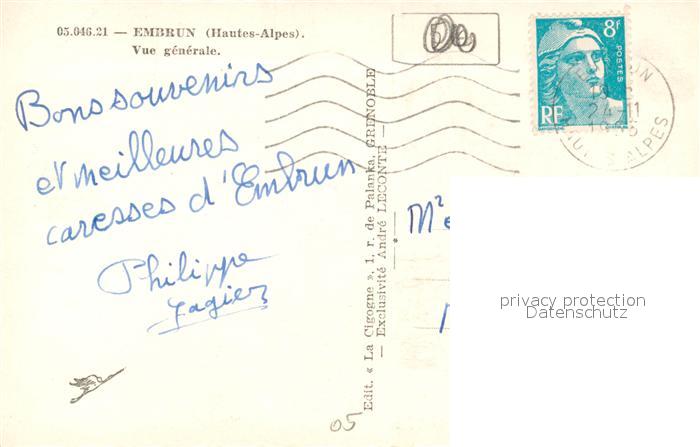 05.046.21 — EMBRUN (Hautes-Alpes).
Vue générale.
Bons souvenirs
et meilleures
caresses d'Embrun
Philippe
Edit. « La Cigogne », 1, r. de Palanka, GRENOBLE
— Exclusivité André LECONTE —
8f
POSTES
RF
24-11
ALPES
privacy protection
Datenschutz
05